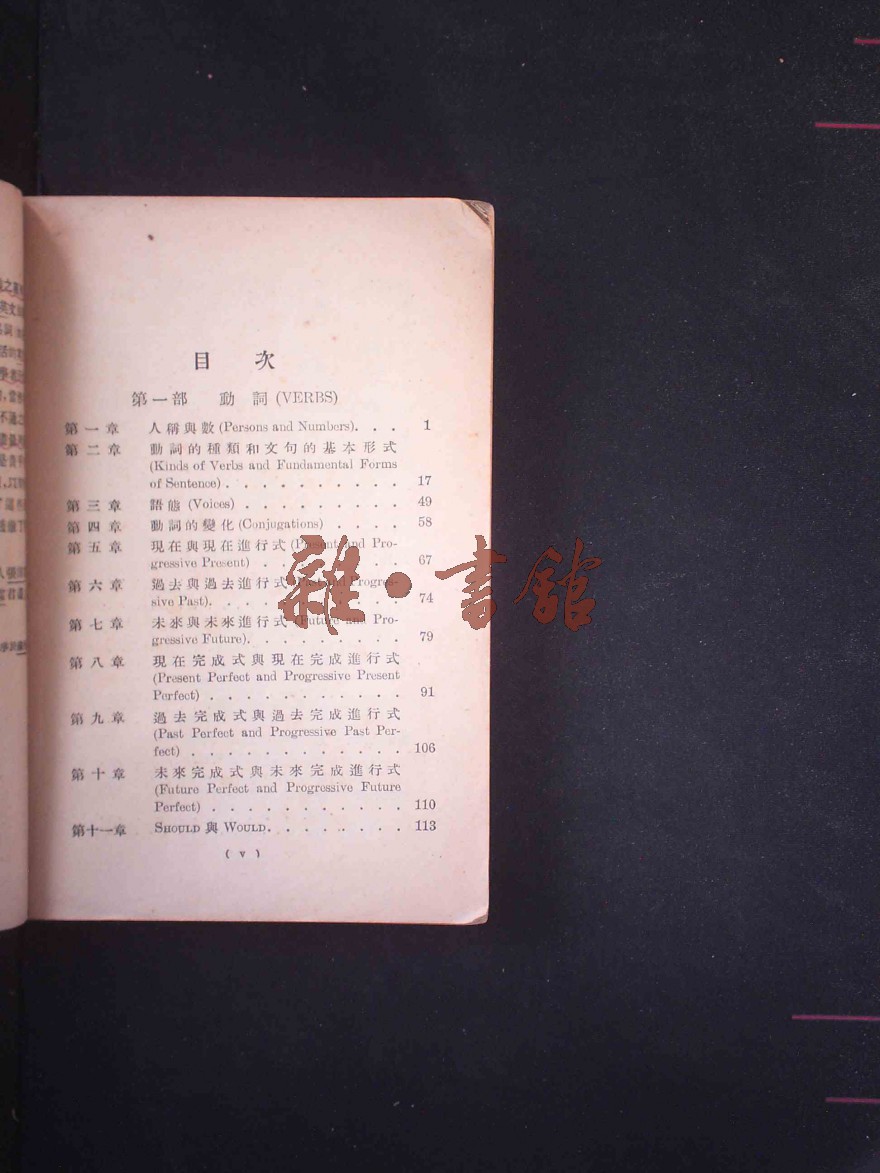 目次
第一部 動詞 (VERBS)
第一章 人稱與數 (Persons and Numbers). . . 1
第二章 動詞的種類和文句的基本形式
(Kinds of Verbs and Fundamental Forms
of Sentence) . . . . . . . . . 17
第三章 語態 (Voices) . . . . . . . . 49
第四章 動詞的變化 (Conjugations) . . . . 58
第五章 現在與現在進行式 (Present and Pro-
gressive Present) . . . . . . . . 67
第六章 過去與過去進行式 (Past and Progres-
sive Past). . . . . . . . . . 74
第七章 未來與未來進行式 (Future and Pro-
gressive Future). . . . . . . . 79
第八章 現在完成式與現在完成進行式
(Present Perfect and Progressive Present
Perfect) . . . . . . . . . . 91
第九章 過去完成式與過去完成進行式
(Past Perfect and Progressive Past Per-
fect) . . . . . . . . . . . 106
第十章 未來完成式與未來完成進行式
(Future Perfect and Progressive Future
Perfect) . . . . . . . . . . 110
第十一章 SHOULD 與 WOULD. . . . . . . 113
( v )
雜·書館